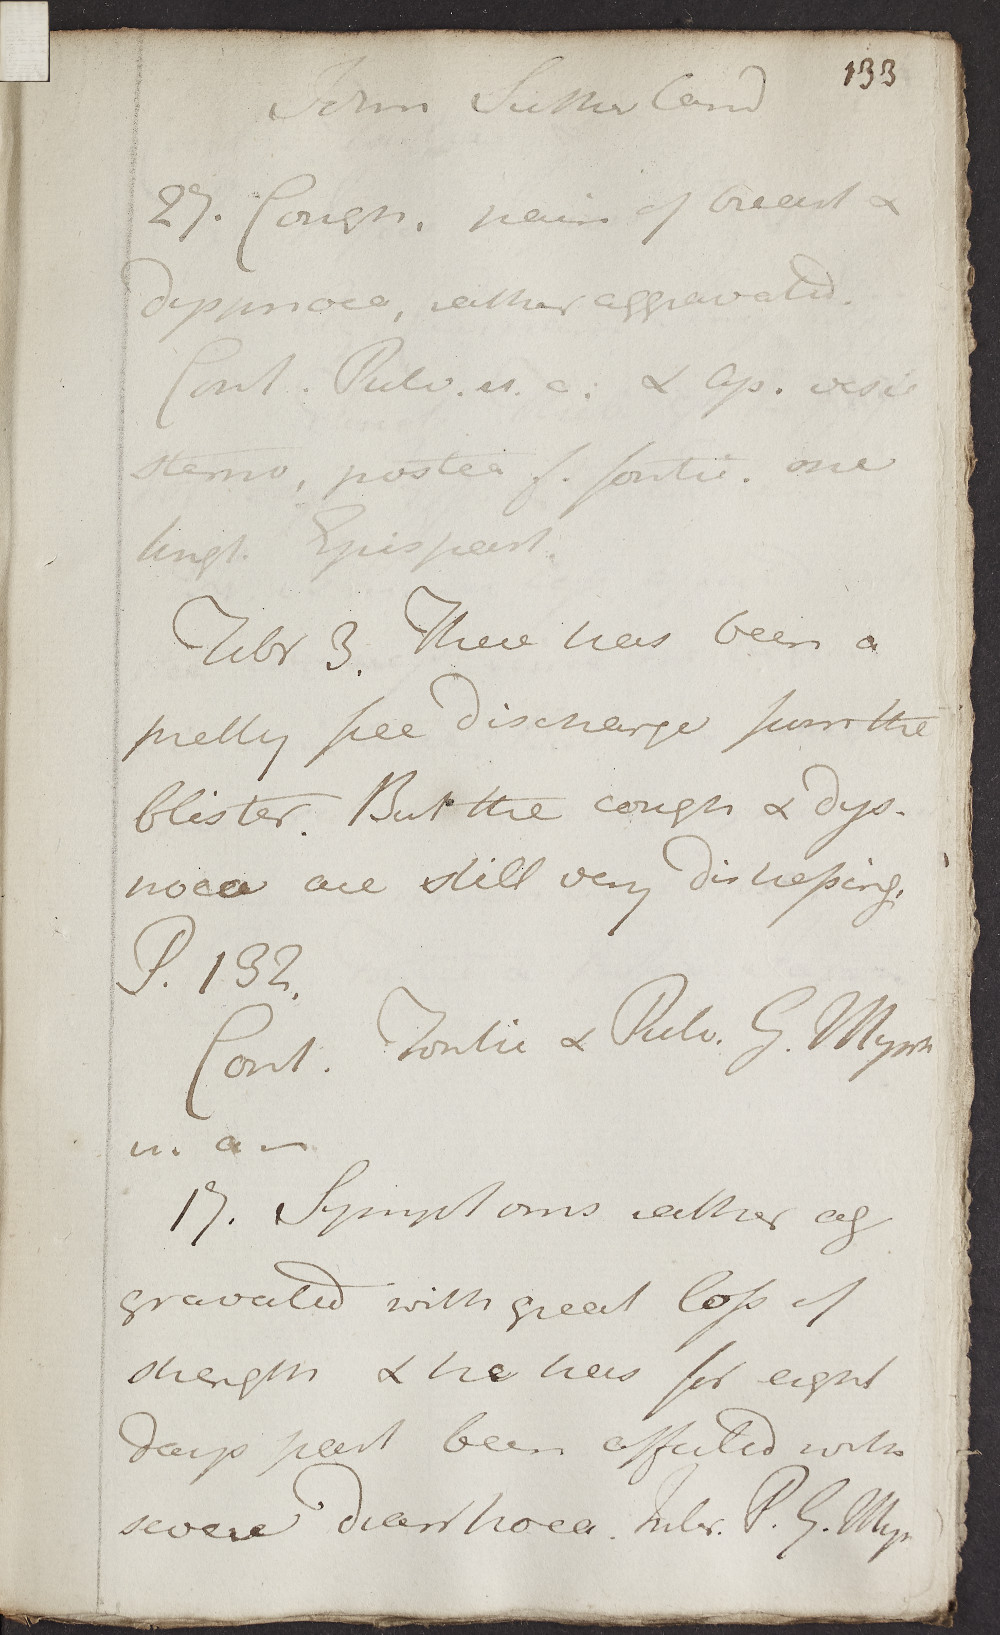 133
John Sutherland
27. Cough, pain of breast &
dyspnoea, rather aggravated.
Cont. Pulv. u. a. & Ap. vesic
sterno, postea f. fontic. ope
Ungt. Epispast.
Febr 3. There has been a
pretty free discharge from the
blister. But the cough & dys-
noea are still very distressing.
P. 132.
Cont. Fontic & Pulv. G. Myrrh
u. a
17. Symptoms rather ag
gravated with great loss of
strength & he has for eight
days past been affected with
severe diarrhoea. Intr. P. G. Myr